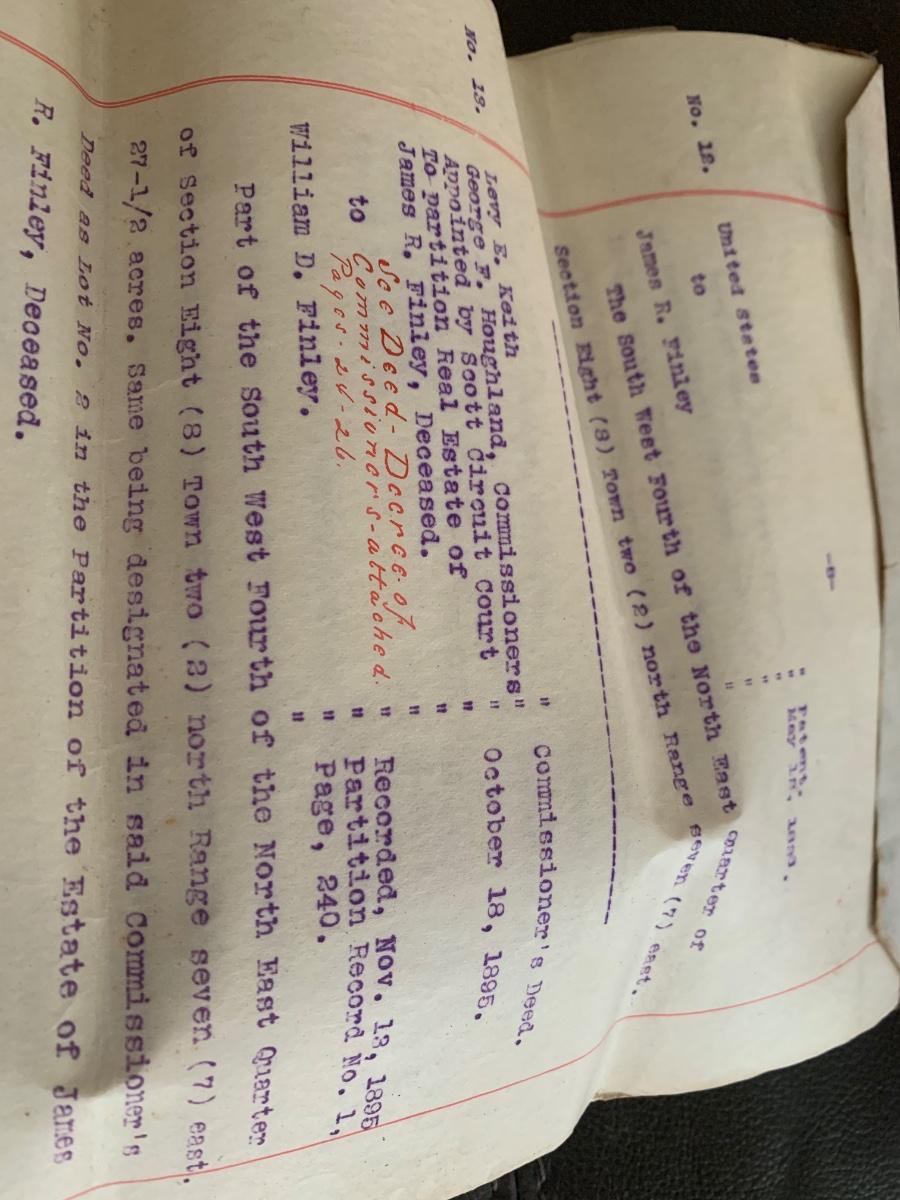 -8-
No. 12.
United States " Patent.
to " May
James R. Finley "
The South West Fourth of the North East Quarter of
Section Eight (8) Town two (2) north Range seven (7) east.
----------------------------------------
No. 13.
Levy E. Keith " Commissioner's Deed.
George F. Houghland, Commissioners"
Appointed by Scott Circuit Court " October 18, 1895.
To partition Real Estate of "
James R. Finley, Deceased. "
to "
See Deed-Decree of
Commissioners-attached.
Pages-24-26.
" Recorded, Nov. 13, 1895
" Partition Record No. 1,
" Page, 240.
William D. Finley. "
Part of the South West Fourth of the North East Quarter
of Section Eight (8) Town two (2) north Range seven (7) east.
27-1/2 acres. Same being designated in said Commissioner's
Deed as Lot No. 2 in the Partition of the Estate of James
R. Finley, Deceased.